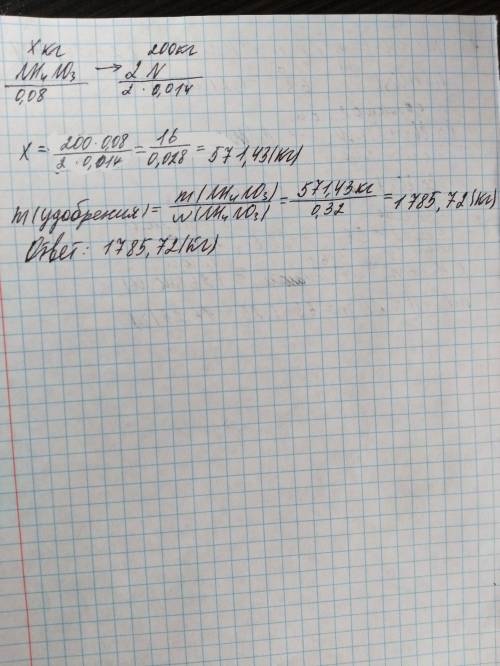 x кг 200кг
NH₄NO₃ → 2N
0,08 2·0,014
X = 200·0,08 / 2·0,014 = 16 / 0,028 = 571,43(кг)
m(удобрения) = m(NH₄NO₃) / w(NH₄NO₃) = 571,43кг / 0,32 = 1785,72(кг)
Ответ: 1785,72(кг)